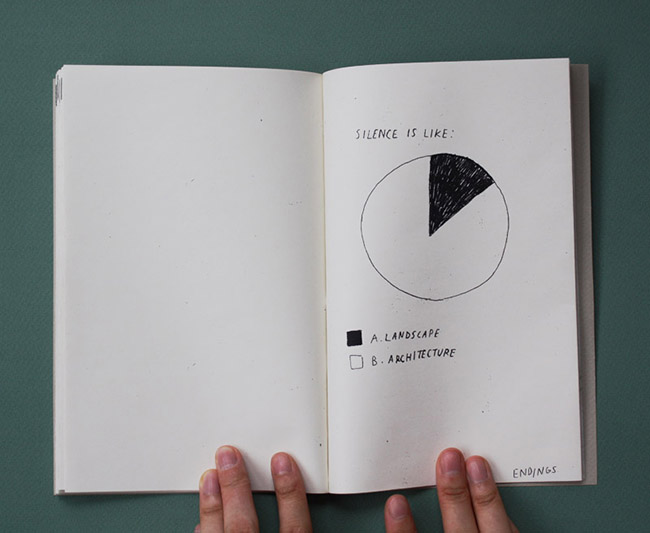 SILENCE IS LIKE:
A. LANDSCAPE
B. ARCHITECTURE
ENDINGS